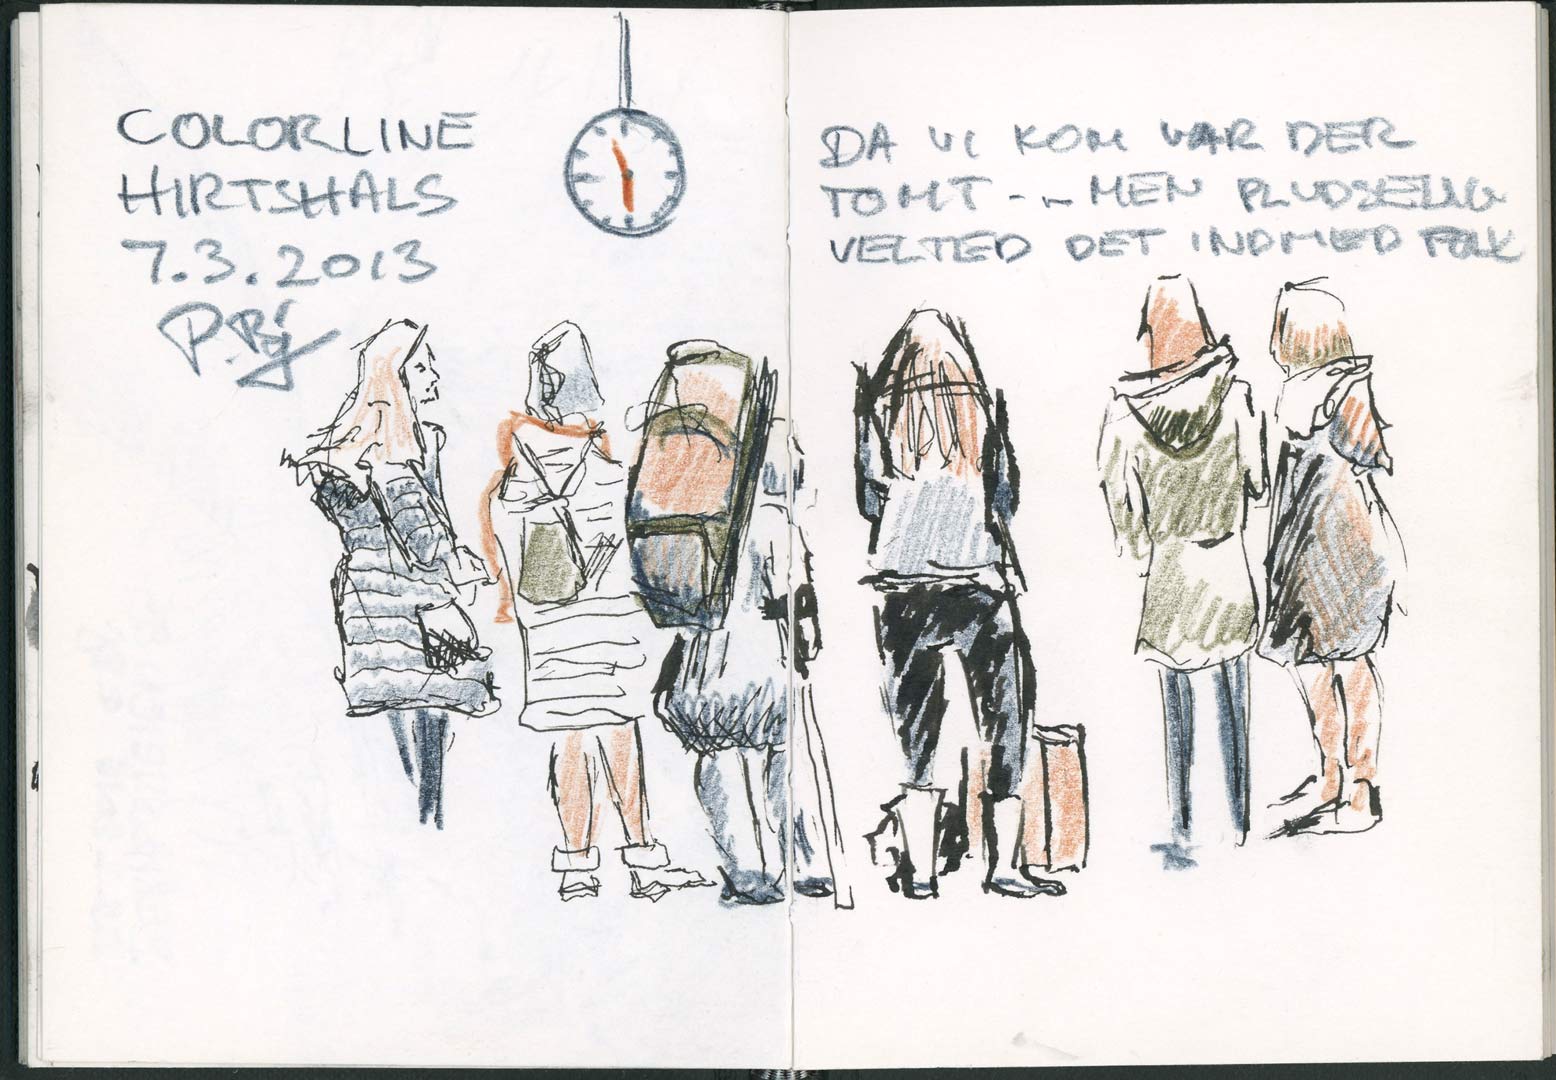 COLORLINE
HIRTSHALS
7.3.2013
DA VI KOM VAR DER
TOMT - -- MEN PLUDSELIG
VELTED DET IND MED FOLK